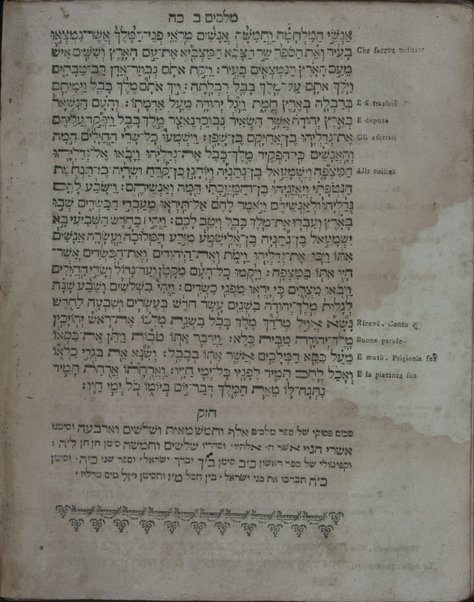 מלכים ב כה
אנשי המלחמה וחמשה אנשים מראי פני־המלך אשר נמצאו
בעיר ואת הספר שר הצבא המצבא את־עם הארץ וששים איש
Che faceva militare
מעם הארץ הנמצאים בעיר: ויקח אתם נבוזראדן רב־טבחים
וילך אתם על־מלך בבל רבלתה: ויך אותם מלך בבל וימיתם
ברבלה בארץ חמת ויגל יהודה מעל אדמתו: והעם הנשאר
E fi trasferì
בארץ יהודה אשר השאיר נבוכדנאצר מלך בבל ויפקד עליהם
E deputò
את־גדליהו בן־אחיקם בן־שפן: וישמעו כל־שרי החילים המה
Gli eserciti
והאנשים כי־הפקיד מלך־בבל את־גדליהו ויבאו אל־גדליהו
המצפה וישמעאל בן־נתניה ויוחנן בן־קרח ושריה בן־תנחמת
Alla collina
הנטפתי ויאזניהו בן־המעכתי המה ואנשיהם: וישבע להם
גדליהו ולאנשיהם ויאמר להם אל־תיראו מעבדי הכשדים שבו
בארץ ועבדו את־מלך בבל ויטב לכם: ויהי בחדש השביעי בא
ישמעאל בן־נתניה בן־אלישמע מזרע המלוכה ועשרה אנשים
אתו ויכו את־גדליהו וימת ואת־היהודים ואת־הכשדים אשר־
היו אתו במצפה: ויקמו כל־העם מקטן ועד־גדול ושרי החילים
ויבאו מצרים כי יראו מפני כשדים: ויהי בשלשים ושבע שנה
לגלות יהויכין מלך־יהודה בשנים עשר חדש בעשרים ושבעה לחדש
נשא אויל מרדך מלך בבל בשנת מלכו את־ראש יהויכין
Ricevè. Conto
מלך־יהודה מבית כלא: וידבר אתו טבות ויתן את־כסאו
Buone parole
מעל כסא המלכים אשר אתו בבבל: ושנא את בגדי כלאו
E mutò. Prigionia sua
ואכל לחם תמיד לפניו כל־ימי חייו: וארחתו ארחת תמיד
E la pietanza sua
נתנה־לו מאת המלך דבר־יום ביומו כל ימי חייו:
חזק
סכום פסוקי של ספר מלכים אלף וחמשמאות ושלשים וארבעה וסימנו
אשרי הגוי אשר ה׳ אלהיו: וסדריו שלשים וחמשה סימן
וקפיטולי של ספר ראשון כ״ב סימן בך יברך ישראל: וספר שני כ״ה וסימן
כ״ה תברכו את בני ישראל: בין הכל מ״ז וסימן יזל מים מדליו: